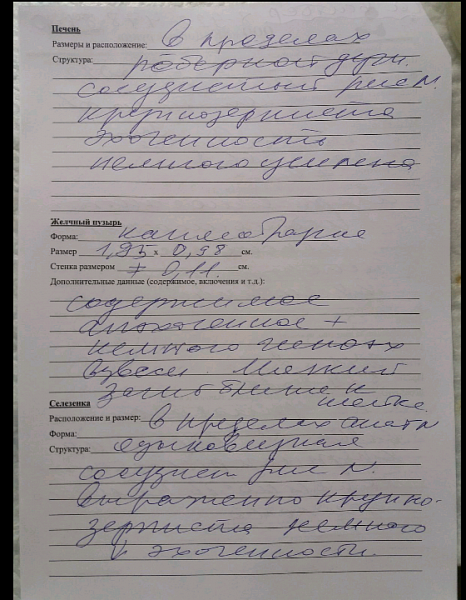 Печень
Размеры и расположение: в пределах
Структура: реберной дуги.
сосудистый рис N.
крупнозерниста
эхогенность
немного усилена
Желчный пузырь
Форма: каплеобразная
Размер 1,95 x 0,98 см.
Стенка размером ± 0,11 см.
Дополнительные данные (содержимое, включения и т.д.):
содержимое
анэхогенное +
немного
взвеси. Мягкий
загиб ближе к
шейке.
Селезенка
Расположение и размер: в пределах анат N
Форма: языковидная
Структура:
сосудист рис N.
выраженно крупно-
зерниста немного
эхогенности.